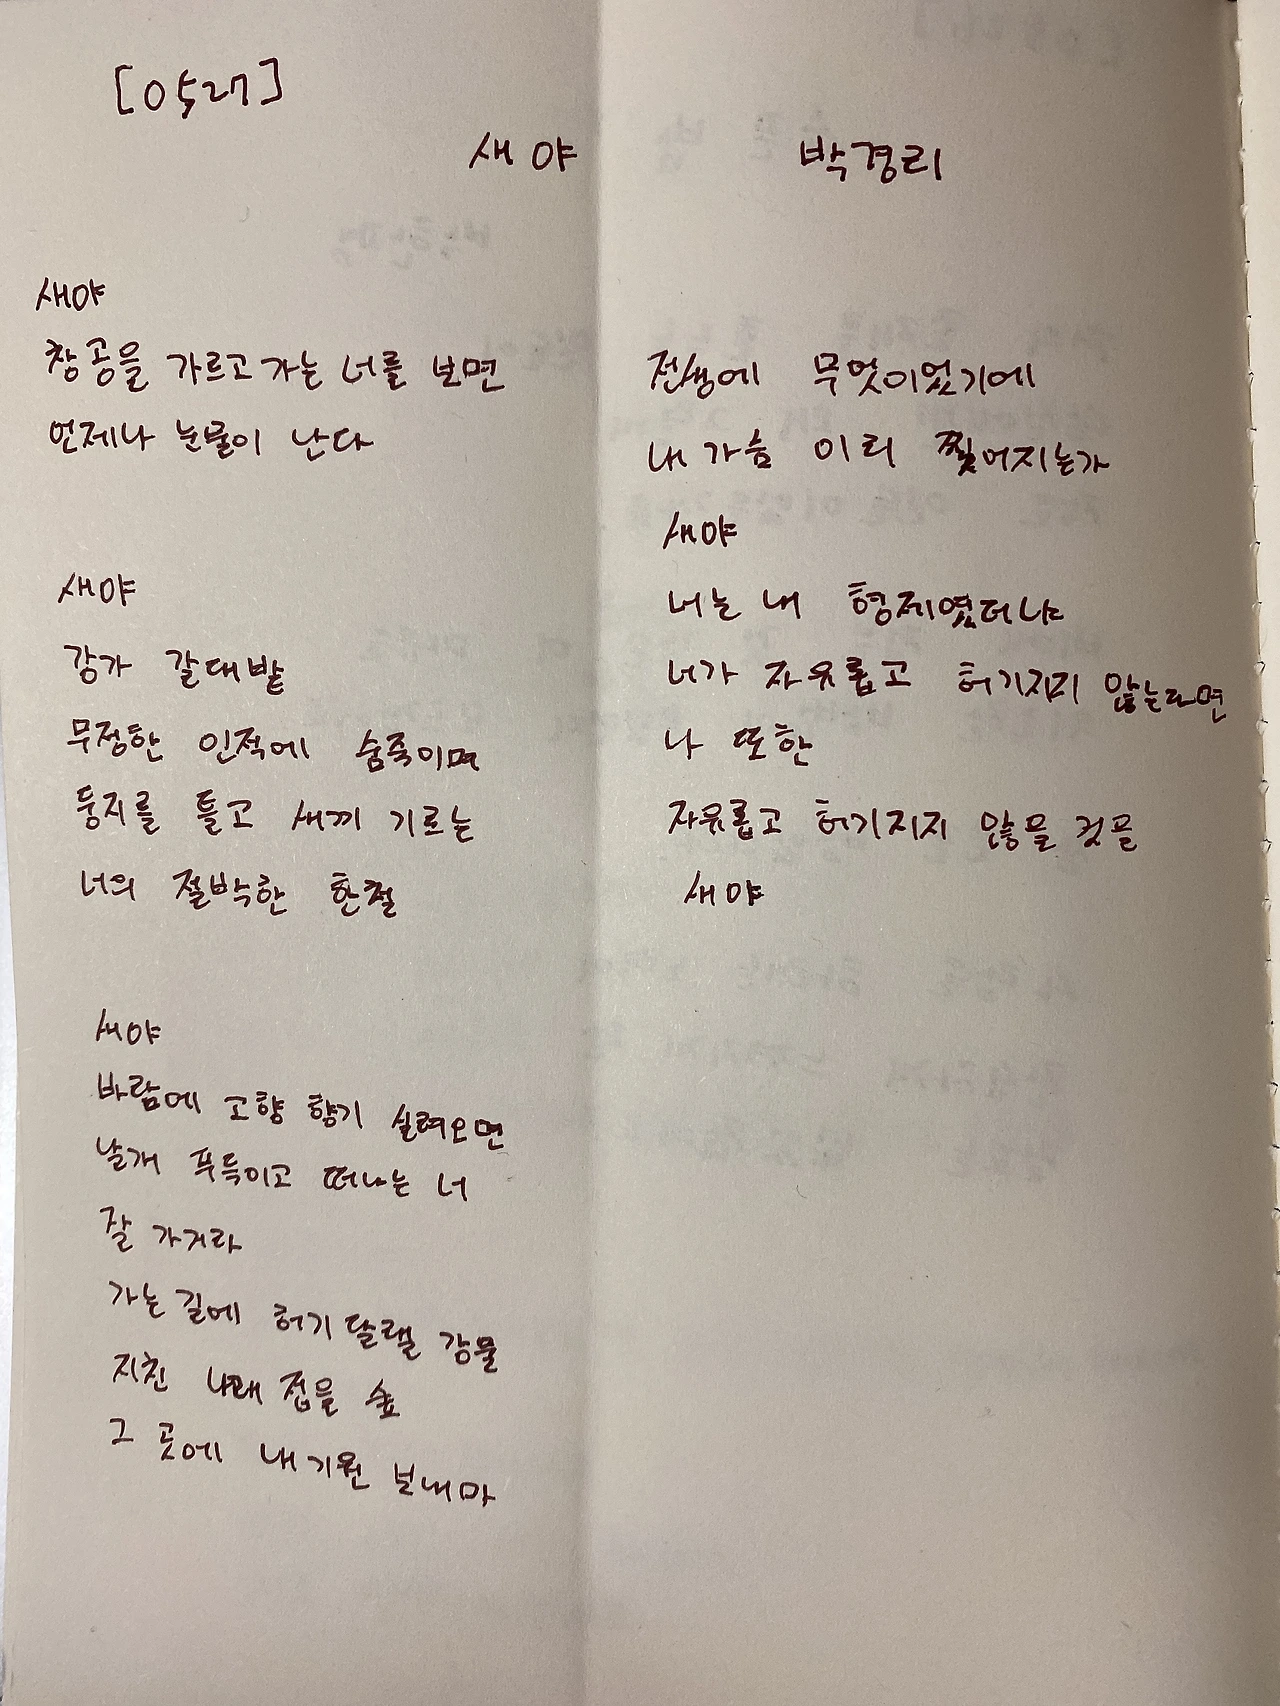 [0527]
새야 박경리
새야
창공을 가르고 가는 너를 보면
언제나 눈물이 난다
새야
강가 갈대밭
무정한 인적에 숨죽이며
둥지를 틀고 새끼 기르는
너의 절박한 한철
새야
바람에 고향 향기 실려오면
날개 푸득이고 떠나는 너
잘 가거라
가는 길에 허기 달랠 강물
지친 나래 접을 숲
그 곳에 내 기원 보내마
전생에 무엇이었기에
내 가슴 이리 찢어지는가
새야
너는 내 형제였더냐
너가 자유롭고 허기지지 않는다면
나 또한
자유롭고 허기지지 않을 것을
새야